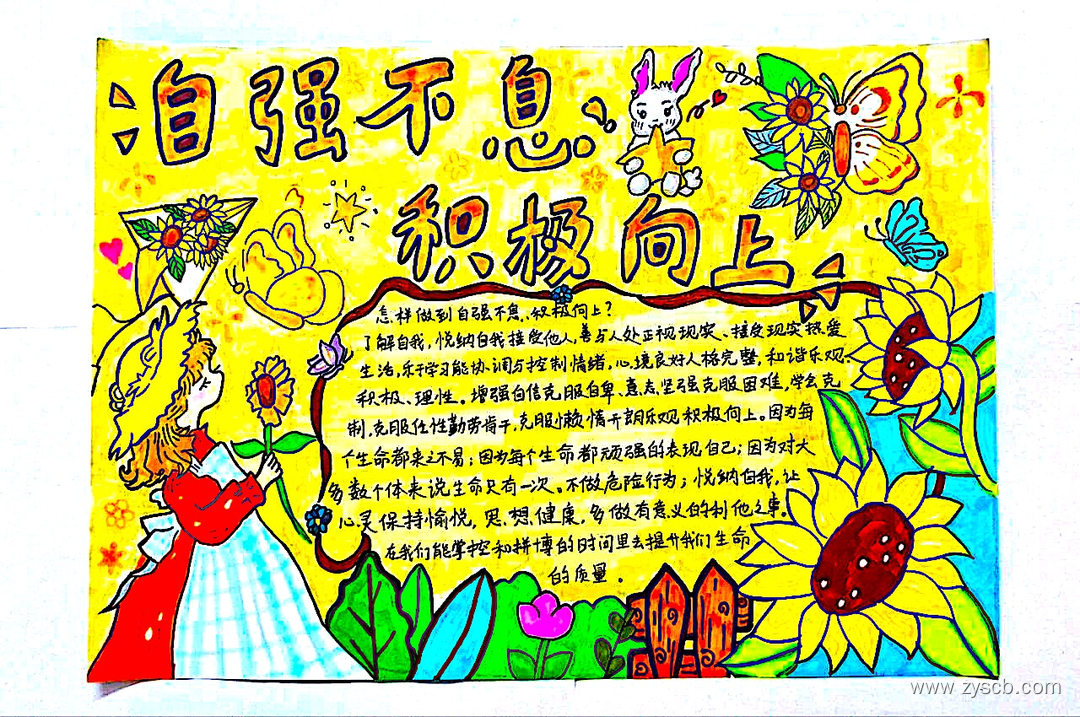 自强不息
积极向上
怎样做到自强不息、积极向上?
了解自我,悦纳自我接受他人,善与人处正视现实、接受现实热爱
生活,乐于学习能协调与控制情绪,心境良好人格完整,和谐乐观、
积极、理性。增强自信克服自卑、意志坚强克服困难,学会克
制,克服任性勤劳肯干,克服懒惰开朗乐观积极向上。因为每
个生命都来之不易;因为每个生命都顽强的表现自己;因为对大
多数个体来说生命只有一次。不做危险行为;悦纳自我,让
心灵保持愉悦,思想健康,多做有意义的利他之事。
在我们能掌控和拼搏的时间里去提升我们生命
的质量。
www.zyscb.com